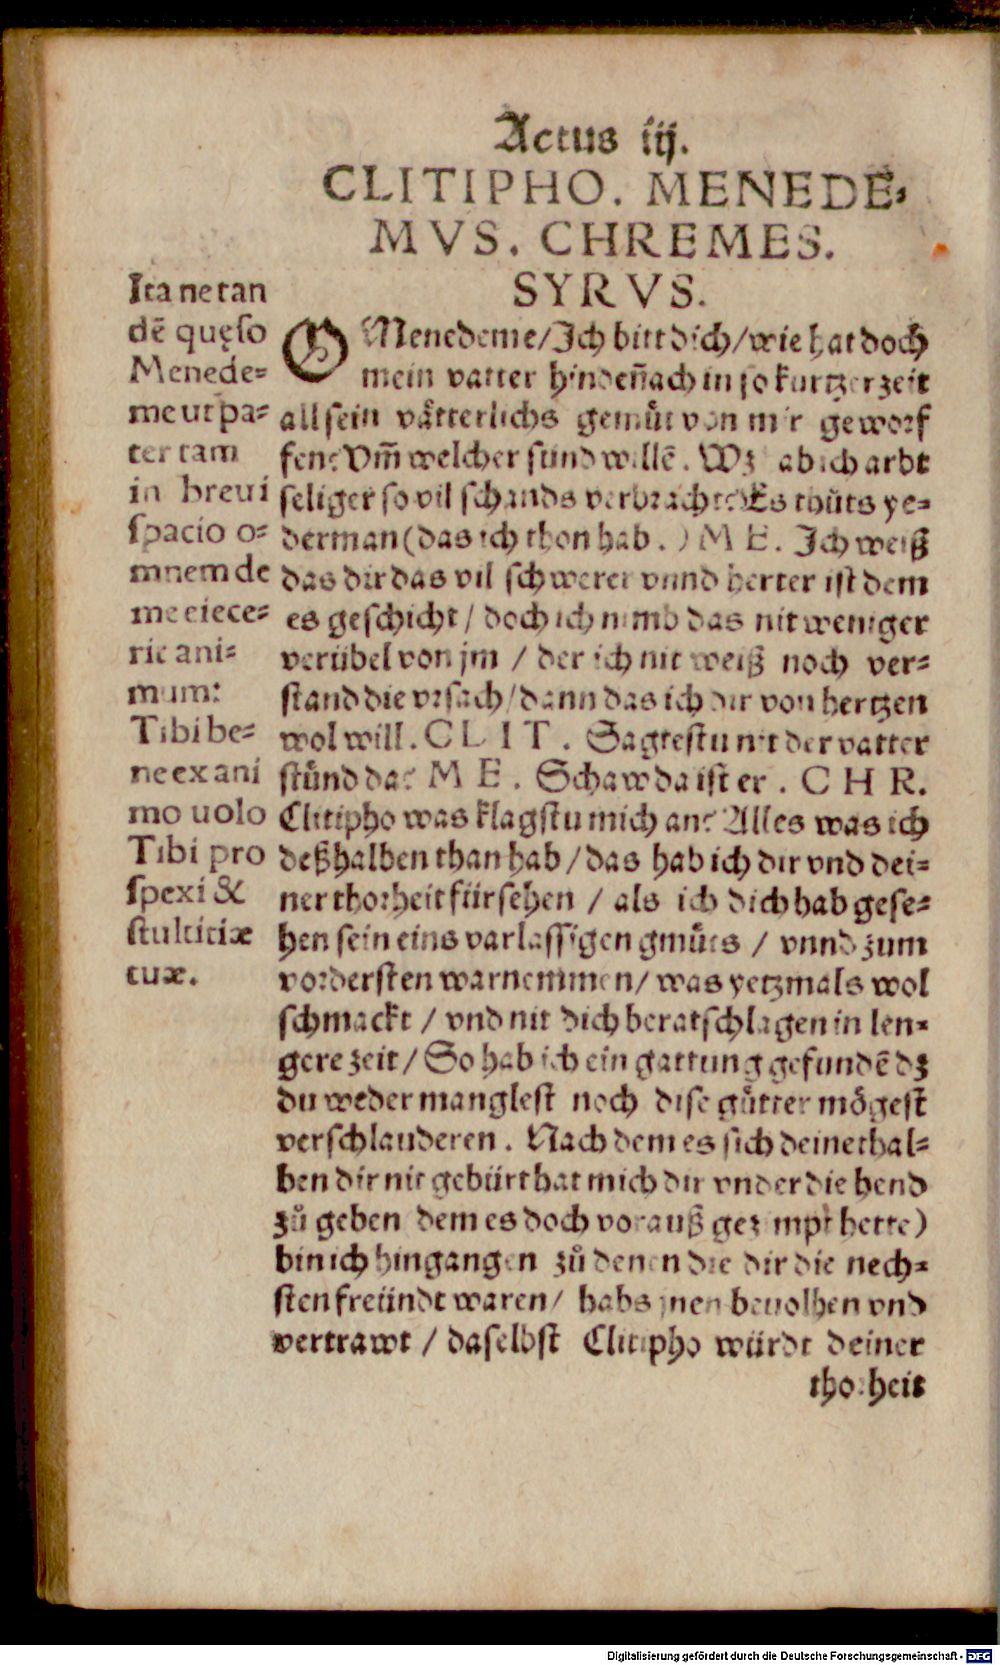 Actus iij.
CLITIPHO. MENEDE-
MVS. CHREMES.
SYRVS.
Ita ne tan
dē quęso
Menede-
me ut pa-
ter tam
in breui
spacio o-
mnem de
me eiece-
rit ani-
mum?
Tibi be-
ne ex ani
mo uolo
Tibi pro
spexi &
stultitiæ
tuæ.
O Menedeme/Ich bitt dich/wie hat doch
mein vatter hindeñach in so kurtzer zeit
all sein vaͤtterlichs gemuͤt von mir geworf
fen? Vm̄ welcher sünd willē. Wz hab ich arbt
seliger so vil schands verbracht? Es thuͤts ye-
derman (das ich thon hab.) ME. Ich weiß
das dir das vil schwerer vnnd herter ist dem
es geschicht/ doch ich nimb das nit weniger
verübel von jm / der ich nit weiß noch ver-
stand die vrsach/dann das ich dir von hertzen
wol will. CLIT. Sagtestu nit der vatter
stuͤnd da? ME. Schaw da ist er. CHR.
Clitipho was klagstu mich an? Alles was ich
deßhalben than hab/das hab ich dir vnd dei-
ner thorheit fürsehen / als ich dich hab gese-
hen sein eins varlässigen gmuͤts / vnnd zum
vordersten warnemmen/ was yetzmals wol
schmackt / vnd nit dich beratschlagen in len-
gere zeit/ So hab ich ein gattung gefundē dz
du weder manglest noch dise guͤtter moͤgest
verschlauderen. Nach dem es sich deinethal-
ben dir nit gebürt hat mich dir vnder die hend
zuͦ geben dem es doch vorauß gezimpt hette)
bin ich hingangen zuͦ denen die dir die nech-
sten freündt waren/ habs jnen beuolhen vnd
vertrawt / daselbst Clitipho würdt deiner
thorheit
Digitalisierung gefördert durch die Deutsche Forschungsgemeinschaft - DFG